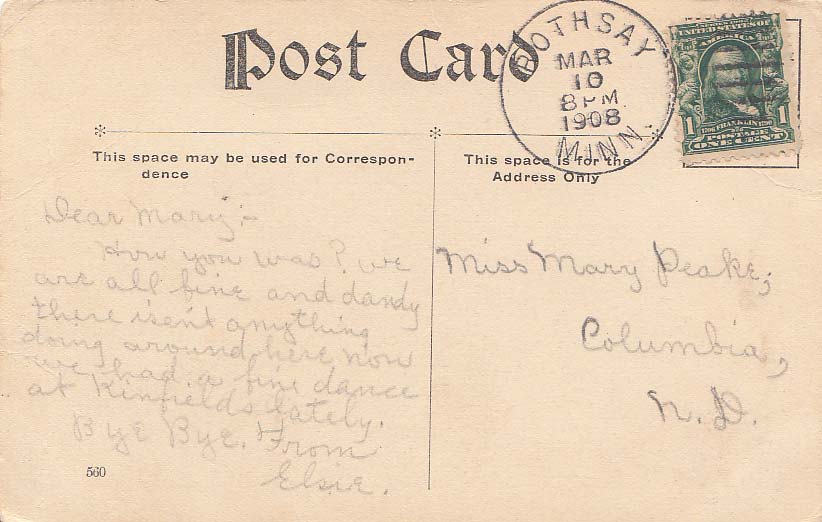 Post Card
ROTHSAY
MAR
10
8 PM
1908
MINN.
UNITED STATES OF
AMERICA
1 1
FRANKLIN
POSTAGE
ONE CENT
This space may be used for Correspon-
dence
This space is for the
Address Only
Dear Mary:-
How you was? we
are all fine and dandy
there isent anything
doing around here now
we had a fine dance
at Kinfields lately.
Bye Bye. From
Elsie.
Miss Mary Peake;
Columbia,
N. D.
560